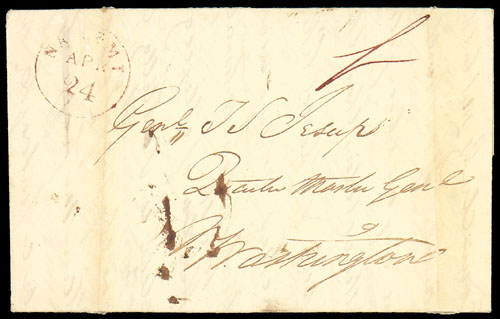 APR
24
Genl T S Jesup
Quarter Master Genl
Washington